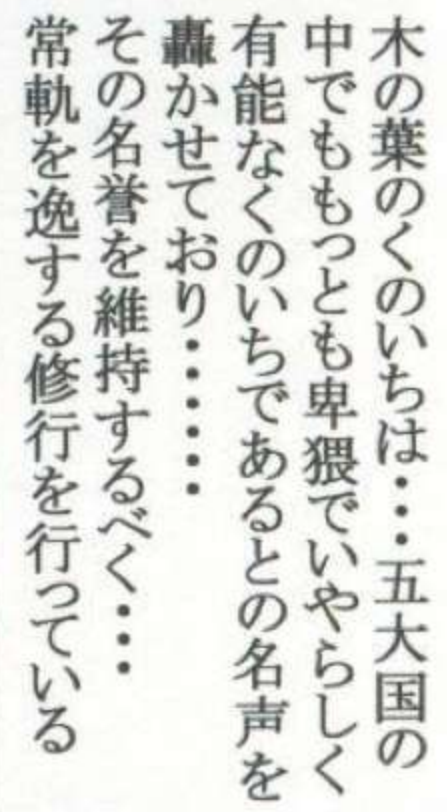 木の葉のくのいちは・・・五大国の
中でももっとも卑猥でいやらしく
有能なくのいちであるとの名声を
轟かせており・・・・・・
その名誉を維持するべく・・・
常軌を逸する修行を行っている